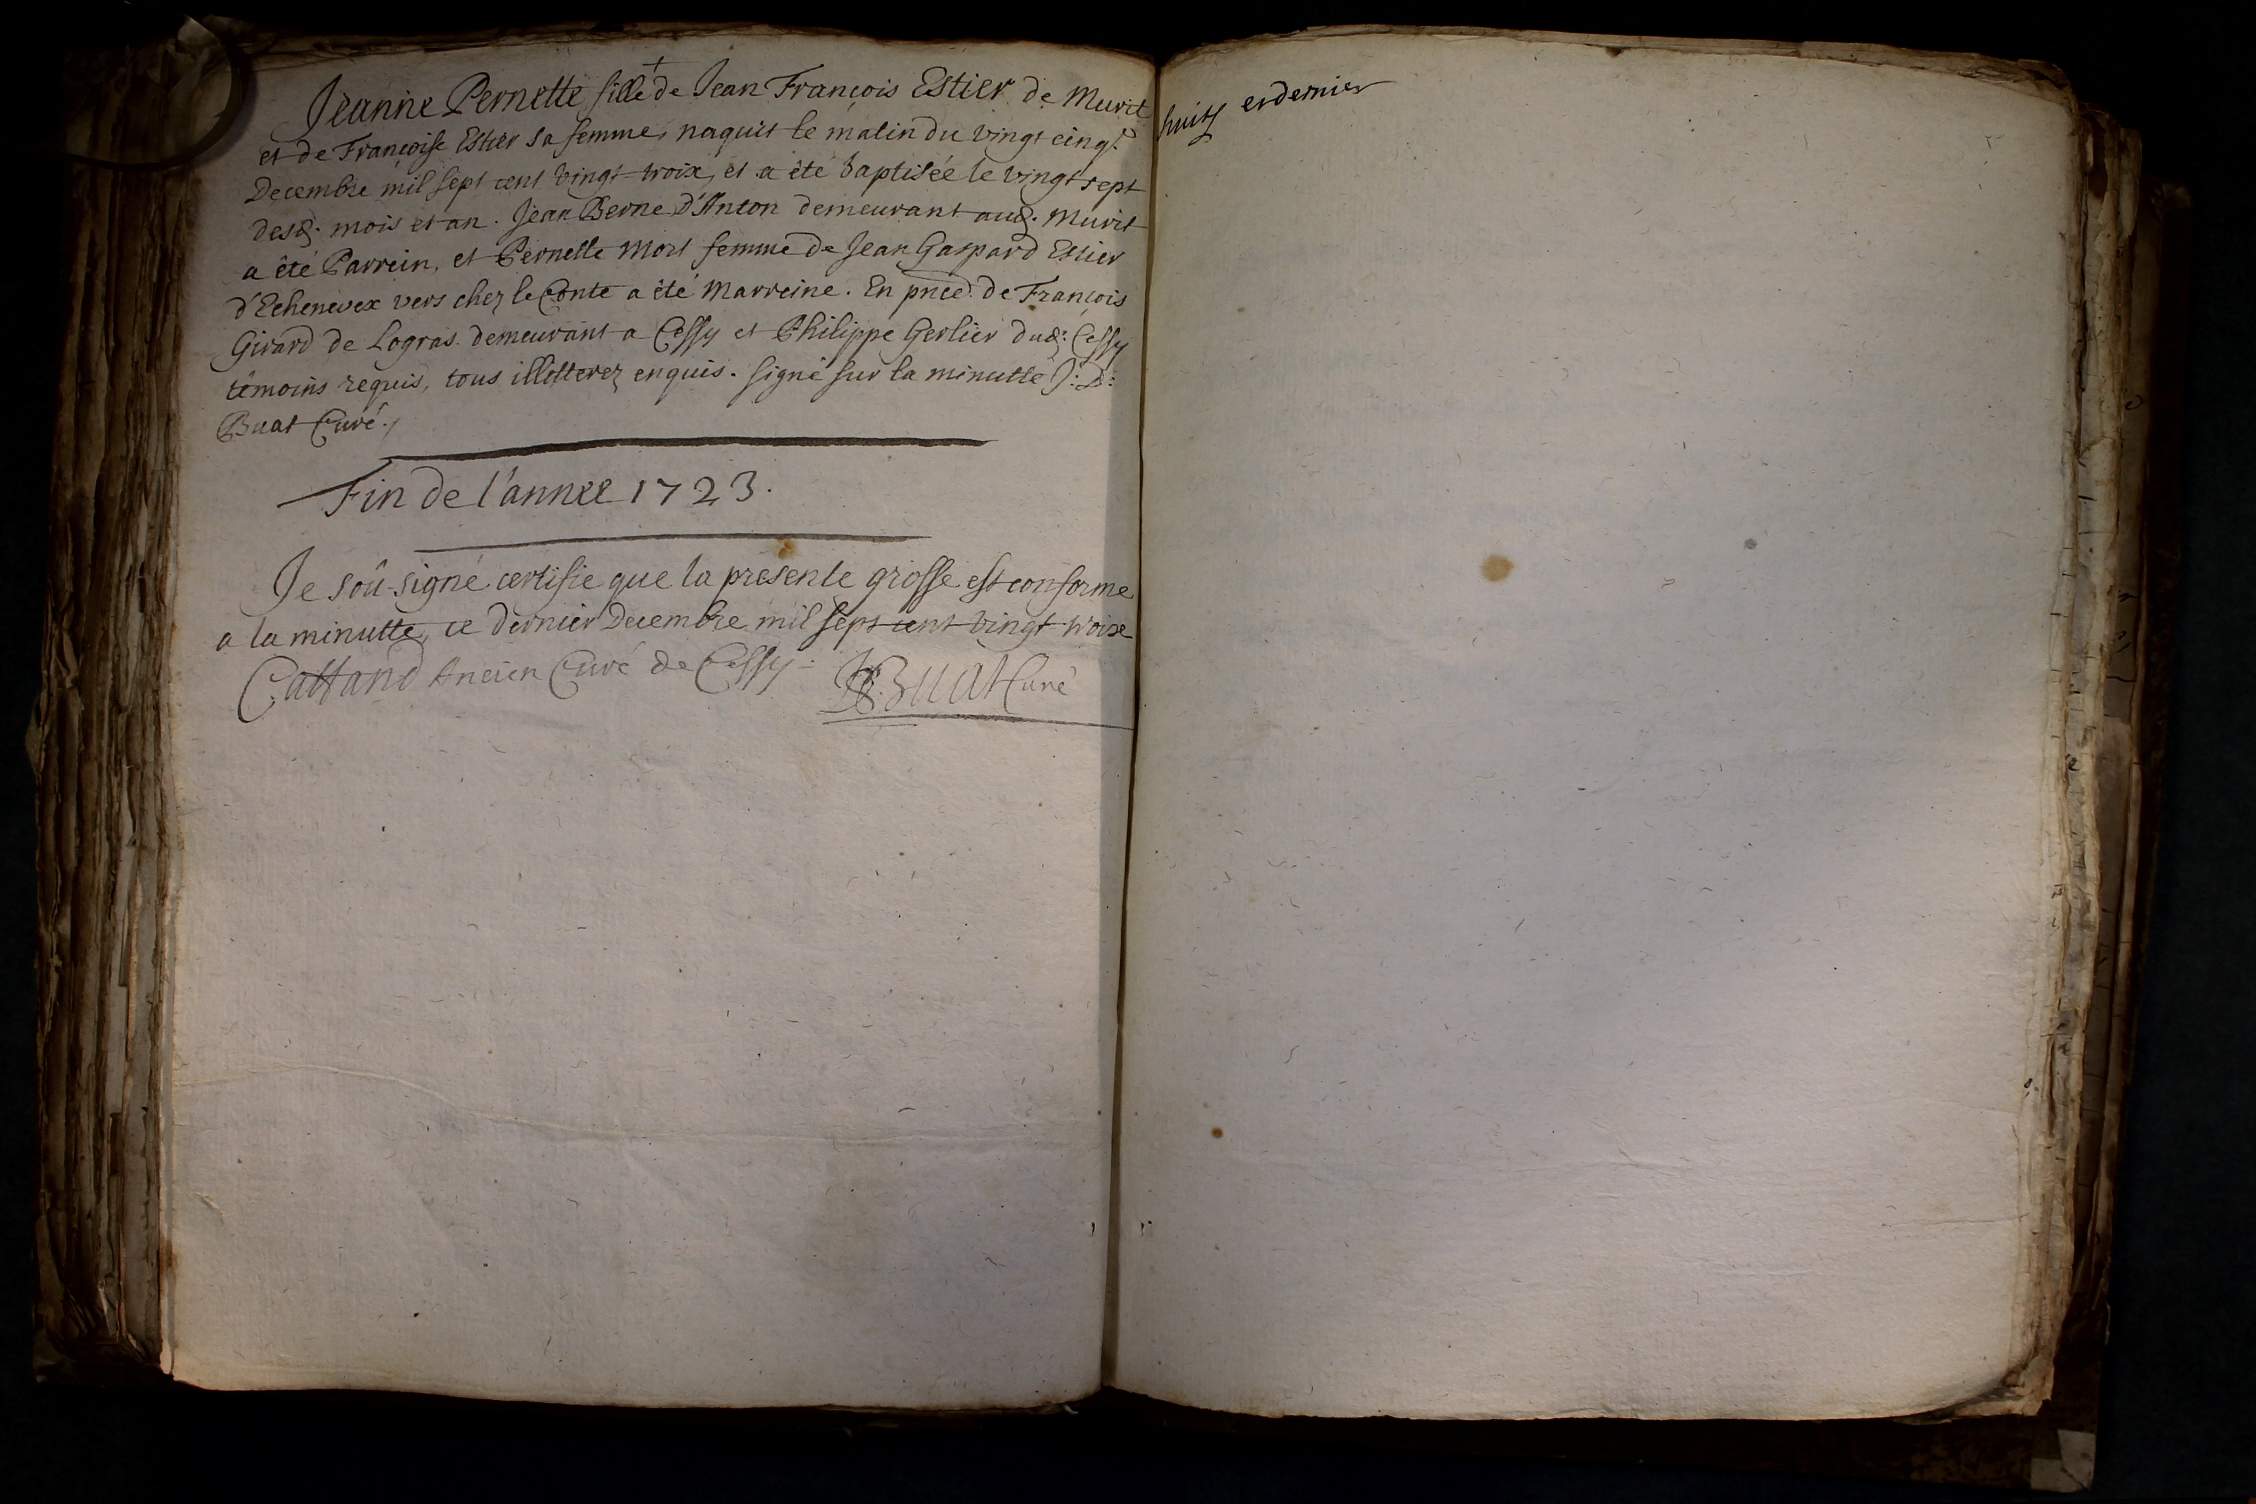 Jeanne Pernette fille de Jean François Estier de Murit
et de Françoise Estier sa femme, naquit le matin du vingt cinq.e
Decembre mil sept cent vingt-troix, et a êté baptisée le vingt sept
desd. mois et an. Jean Berne D'Anton demeurant aud. Murit
a êté Parrein, et Pernette Mort femme de Jean Gaspard Estier
d'Echenevex vers chez le Conte a êté Marreine. En pnce de François
Girard de Logras demeurant a Cessy et Philippe Gerlier dud: Cessy
têmoins requis, tous illitterez enquis. signé sur la minutte J: D:
Buat Curé./
Fin de l'année 1723.
Je soû-signé certifie que la presente grosse est conforme
a la minutte, ce dernier Decembre mil sept cent vingt troix
Cattand Ancien Curé de Cessy
Buat Curé
huit et dernier